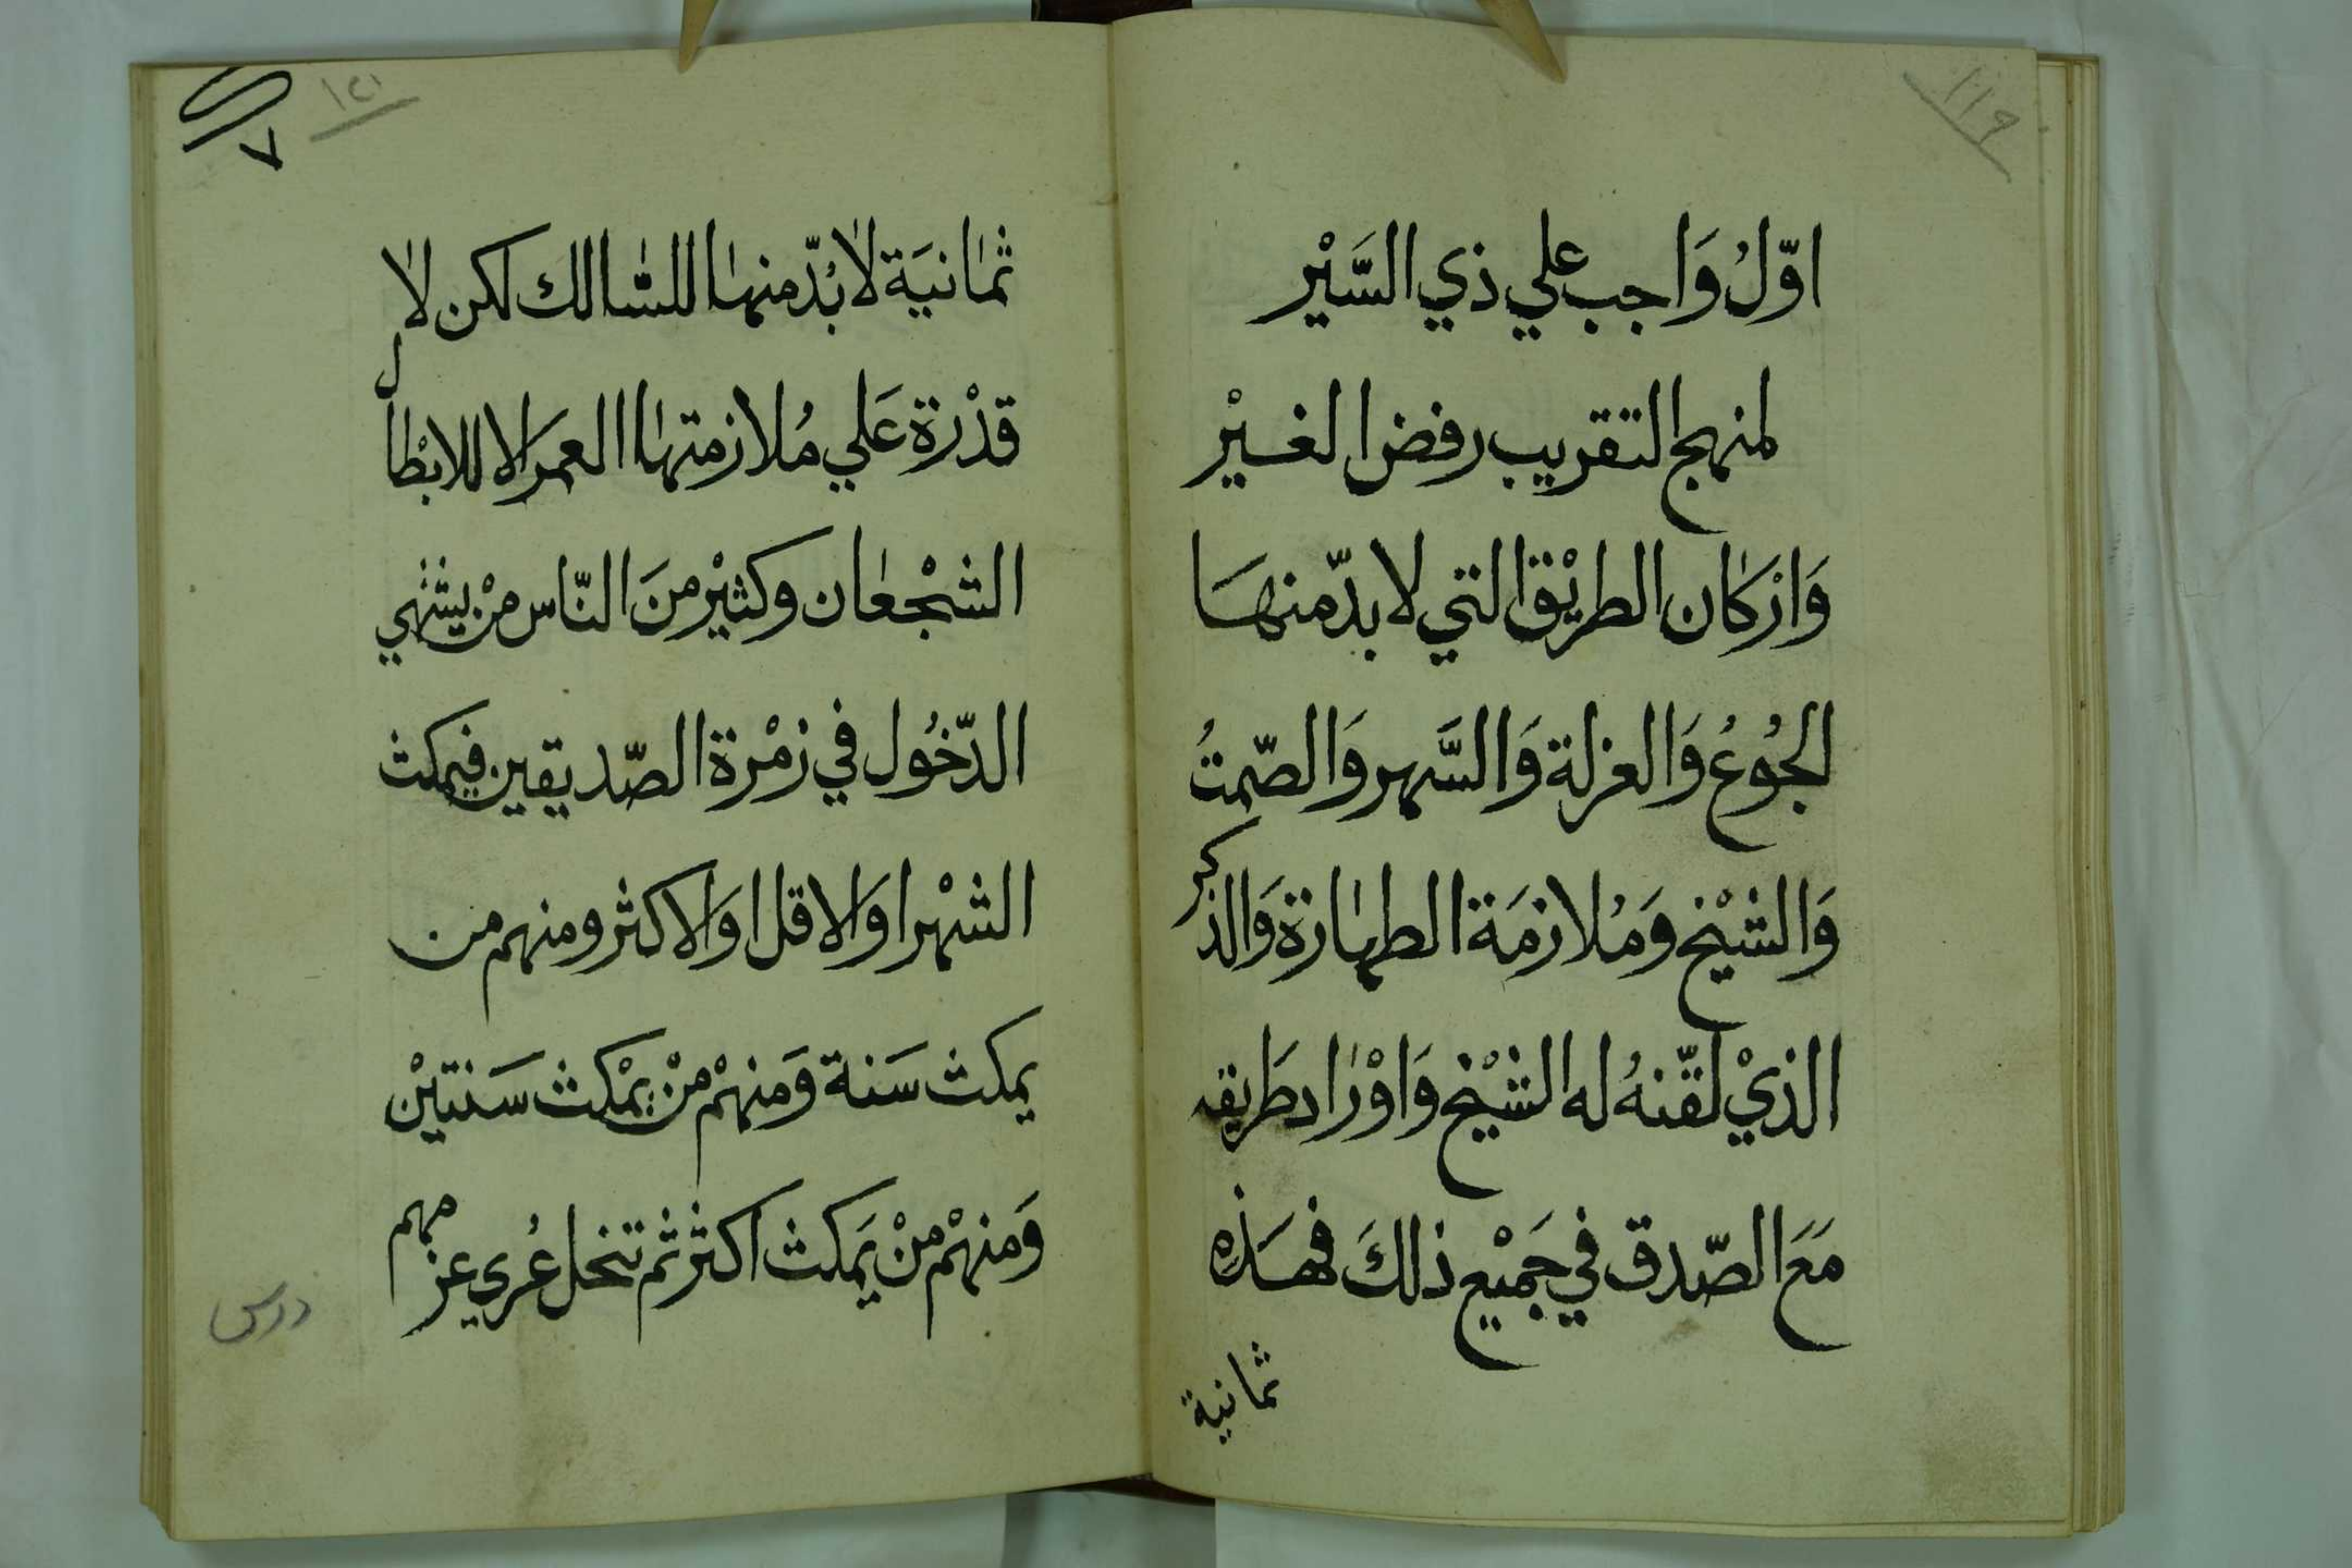 ١١٩
اوّلُ وَاجب علي ذي السَّيْر
لمنهج التقريب رفض الغيْر
وَارْكان الطريْق التي لا بدّ منهَا
الجُوعُ وَالعزلة وَالسَّهر وَالصّمتُ
وَالشيْخ وَمُلازمَة الطهارة وَالذكر
الذيْ لقّنهُ له الشيْخ وَاوْراد طَريقه
مَعَ الصّدق في جَميْع ذلكَ فهَذِه
ثمانية
١٢١
٧
ثمانيَة لا بُدّ منها للسّالك لكن لا
قدْرة عَلي مُلازمتها العمَر الا للابْطال
الشجْعان وكثيْر منَ النّاس منْ يشتهي
الدّخُول في زمْرة الصّديقين فيمكث
الشهْر اوَ الاقل اوَ الاكثر ومنهم من
يمكث سَنة وَمنهمْ منْ يمْكث سَنتيْن
وَمنهْم منْ يَمكث اكثر ثم تنحل عُري عزمهم
درس